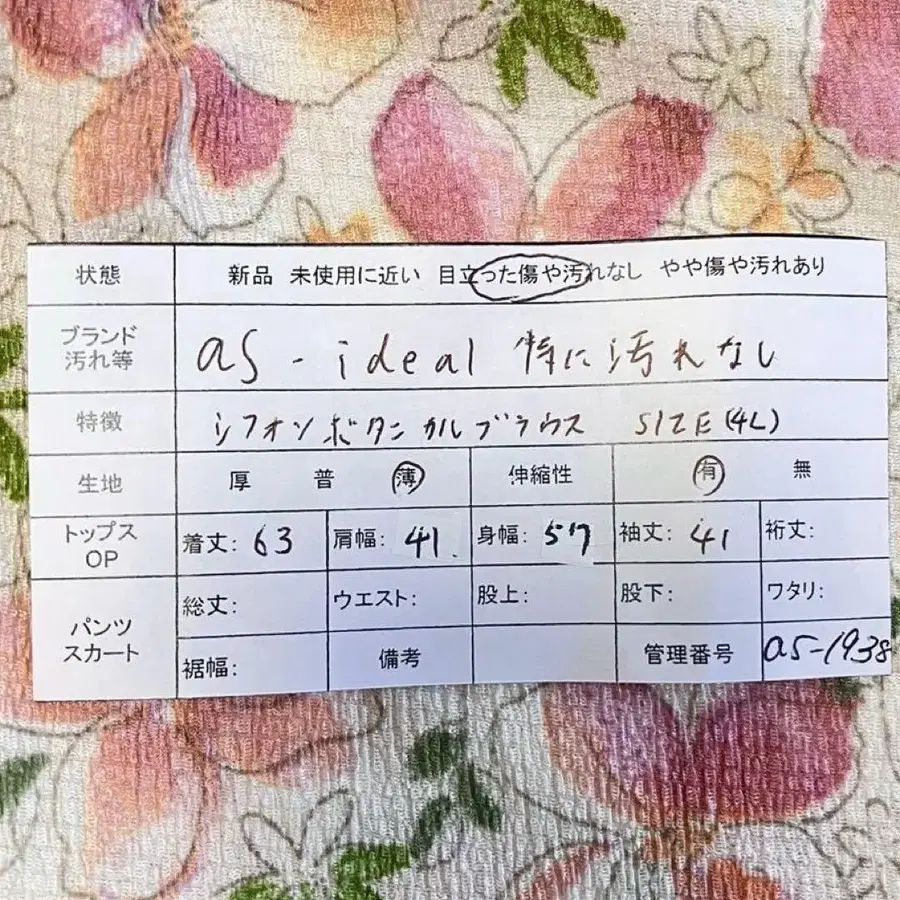 状態 新品 未使用に近い 目立った傷や汚れなし やや傷や汚れあり
ブランド
汚れ等 as - ideal 特に汚れなし
特徴 シフォンボタニカルブラウス SIZE(4L)
生地 厚 普 薄 伸縮性 有 無
トップス
OP 着丈: 63 肩幅: 41. 身幅: 57 袖丈: 41 裄丈:
パンツ
スカート 総丈: ウエスト: 股上: 股下: ワタリ:
裾幅: 備考 管理番号 as-1938